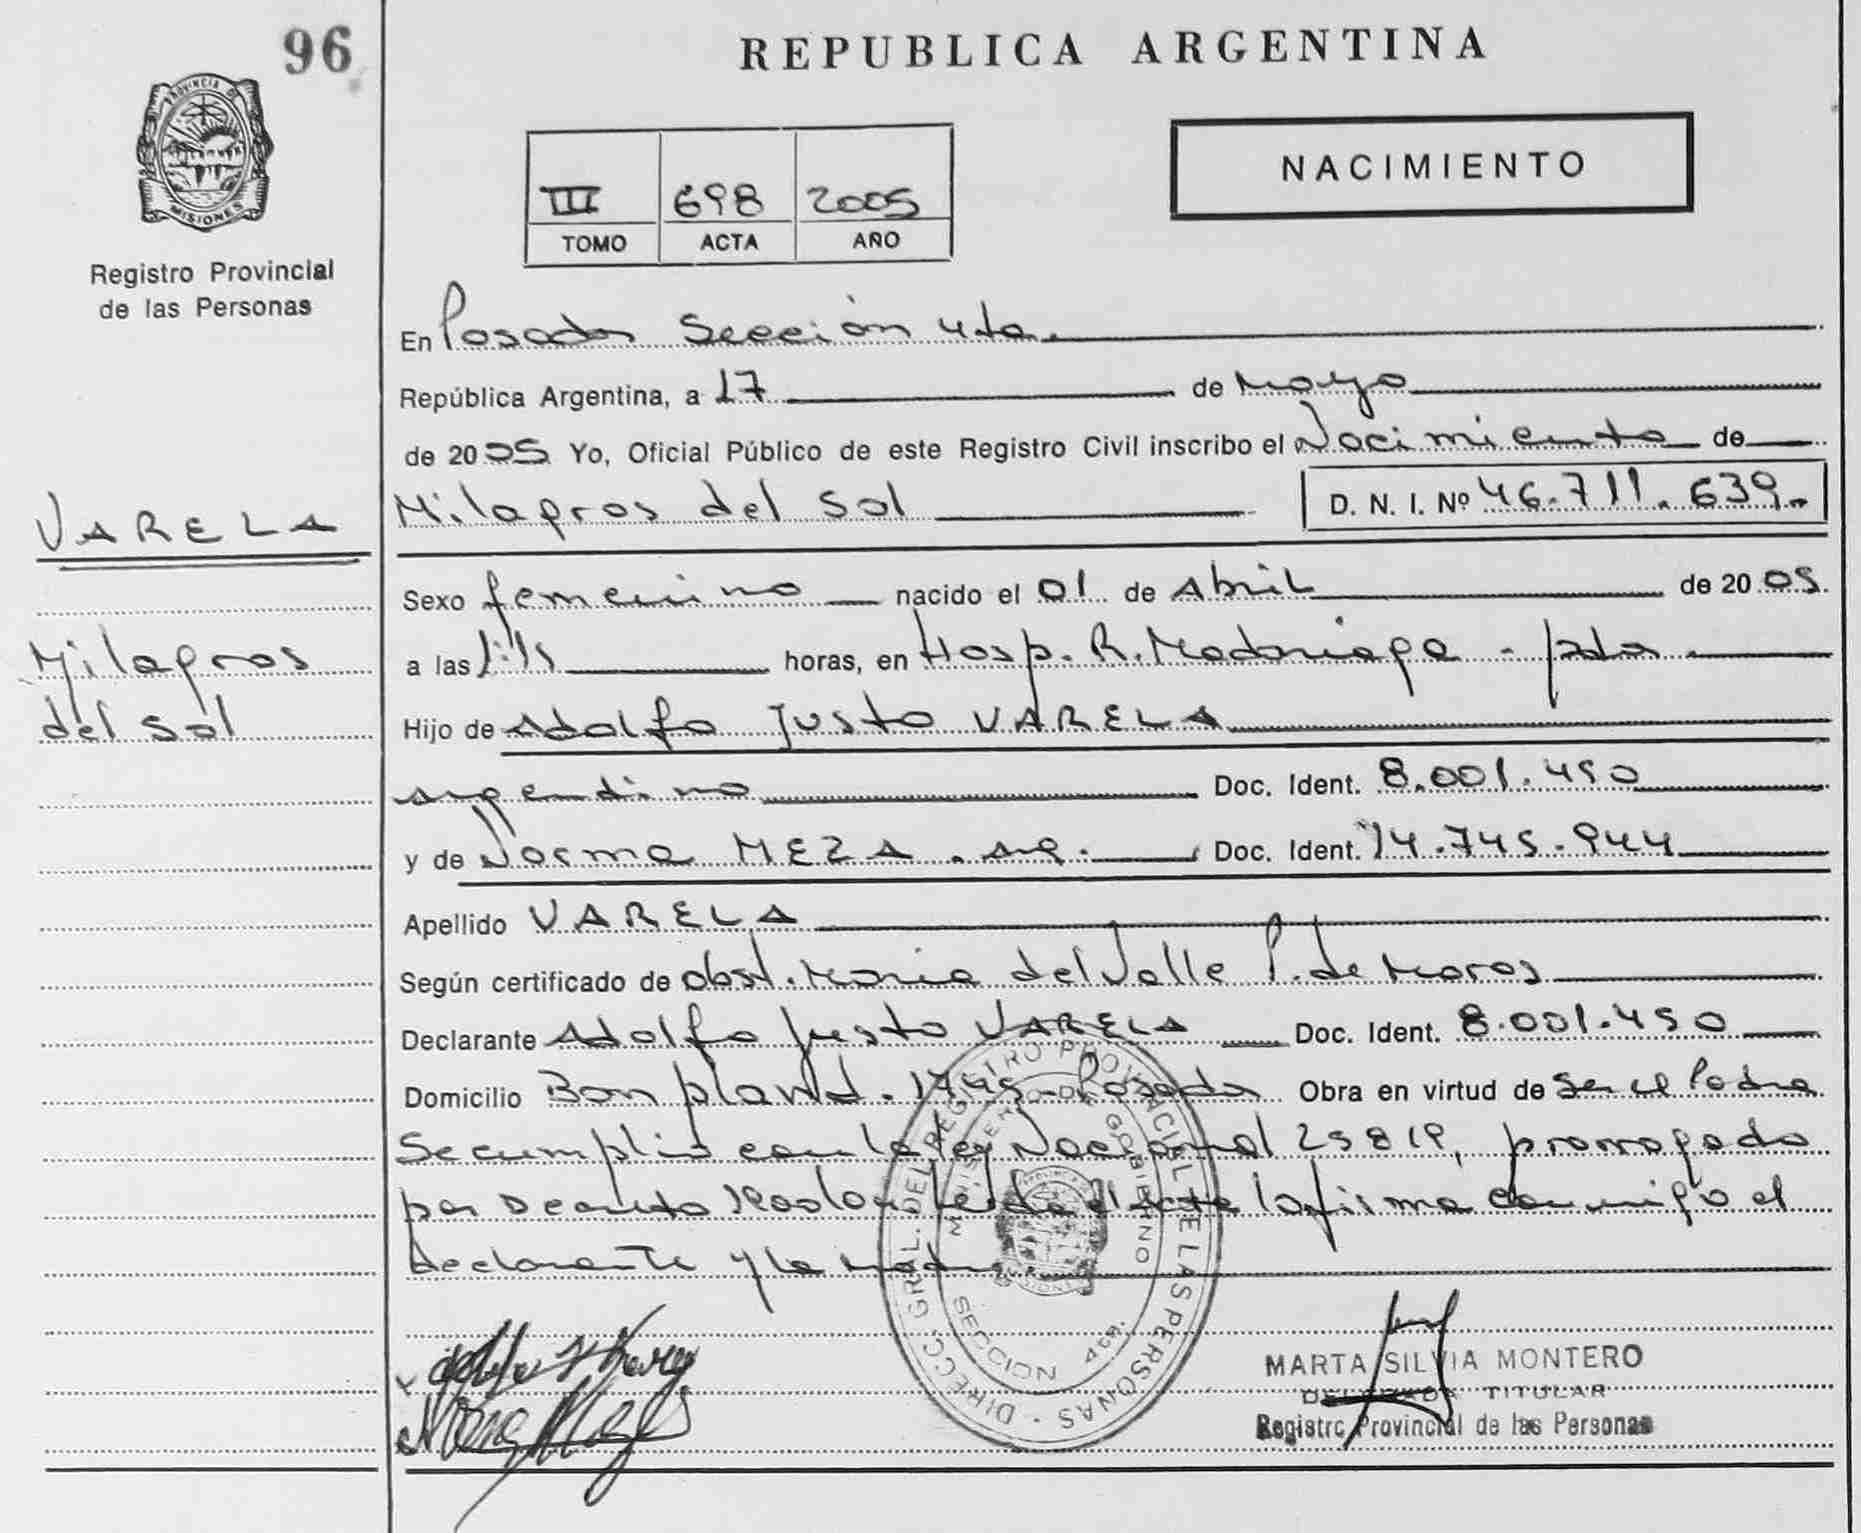 96
REPUBLICA ARGENTINA
PROVINCIA DE
MISIONES
Registro Provincial
de las Personas
NACIMIENTO
III 698 2005
TOMO ACTA AÑO
En Posadas Sección 4ta.
República Argentina, a 17 de Mayo
de 2005 Yo, Oficial Público de este Registro Civil inscribo el Nacimiento de
VARELA
Milagros del Sol D. N. I. Nº 46.711.639.-
Sexo femenino nacido el 01 de Abril de 2005.
Milagros
del Sol
a las horas, en Hosp. R. Madariaga - pdas
Hijo de Adolfo Justo VARELA
argentino Doc. Ident. 8.001.450
y de Norma MEZA. arg. Doc. Ident. 14.745.944
Apellido VARELA
Según certificado de obst. Maria del Valle P. de
Declarante Adolfo Justo VARELA Doc. Ident. 8.001.450
Domicilio Bonpland. Posadas Obra en virtud de ser el Padre
Se cumplió con la ley Nacional 25819, prorrogado
por Decreto Leída el acta la firma conmigo el
declarante y la madre
DIRECC. GRAL. DEL REGISTRO PROVINCIAL DE LAS PERSONAS
MINISTERIO DE GOBIERNO
SECCION 4ta.
MARTA SILVIA MONTERO
DELEGADA TITULAR
Registro Provincial de las Personas